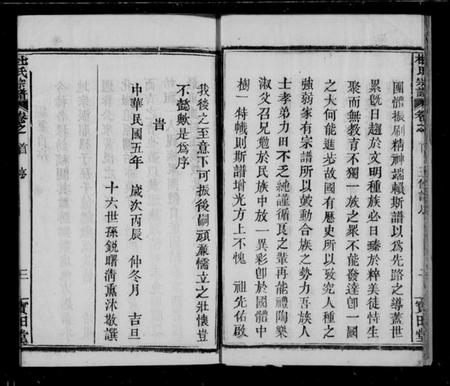 團體振刷精神端賴斯譜以為先路之導蓋世
累旣日趨於文明種族必日臻於粹美徒恃生
聚而無教育不獨一族之眾不能發達卽一國
之大何能進步故國有歷史所以攷究人種之
強弱家有宗譜所以鼓動合族之勢力吾族人
士孝弟力田不乏純謹循良之輩再能禮陶樂
淑父召兄勉於民族中放一異彩卽於國體中
樹一特幟則斯譜增光方上不愧 祖先佑啟
我後之至意下可振後嗣頑薰懦立之壯懷豈
不懿歟是為序
旹
中華民國五年 歲次丙辰 仲冬月 吉旦
十六世孫銳曙清重沐敬譔
杜氏宗譜
卷之首
序
三
寶田堂